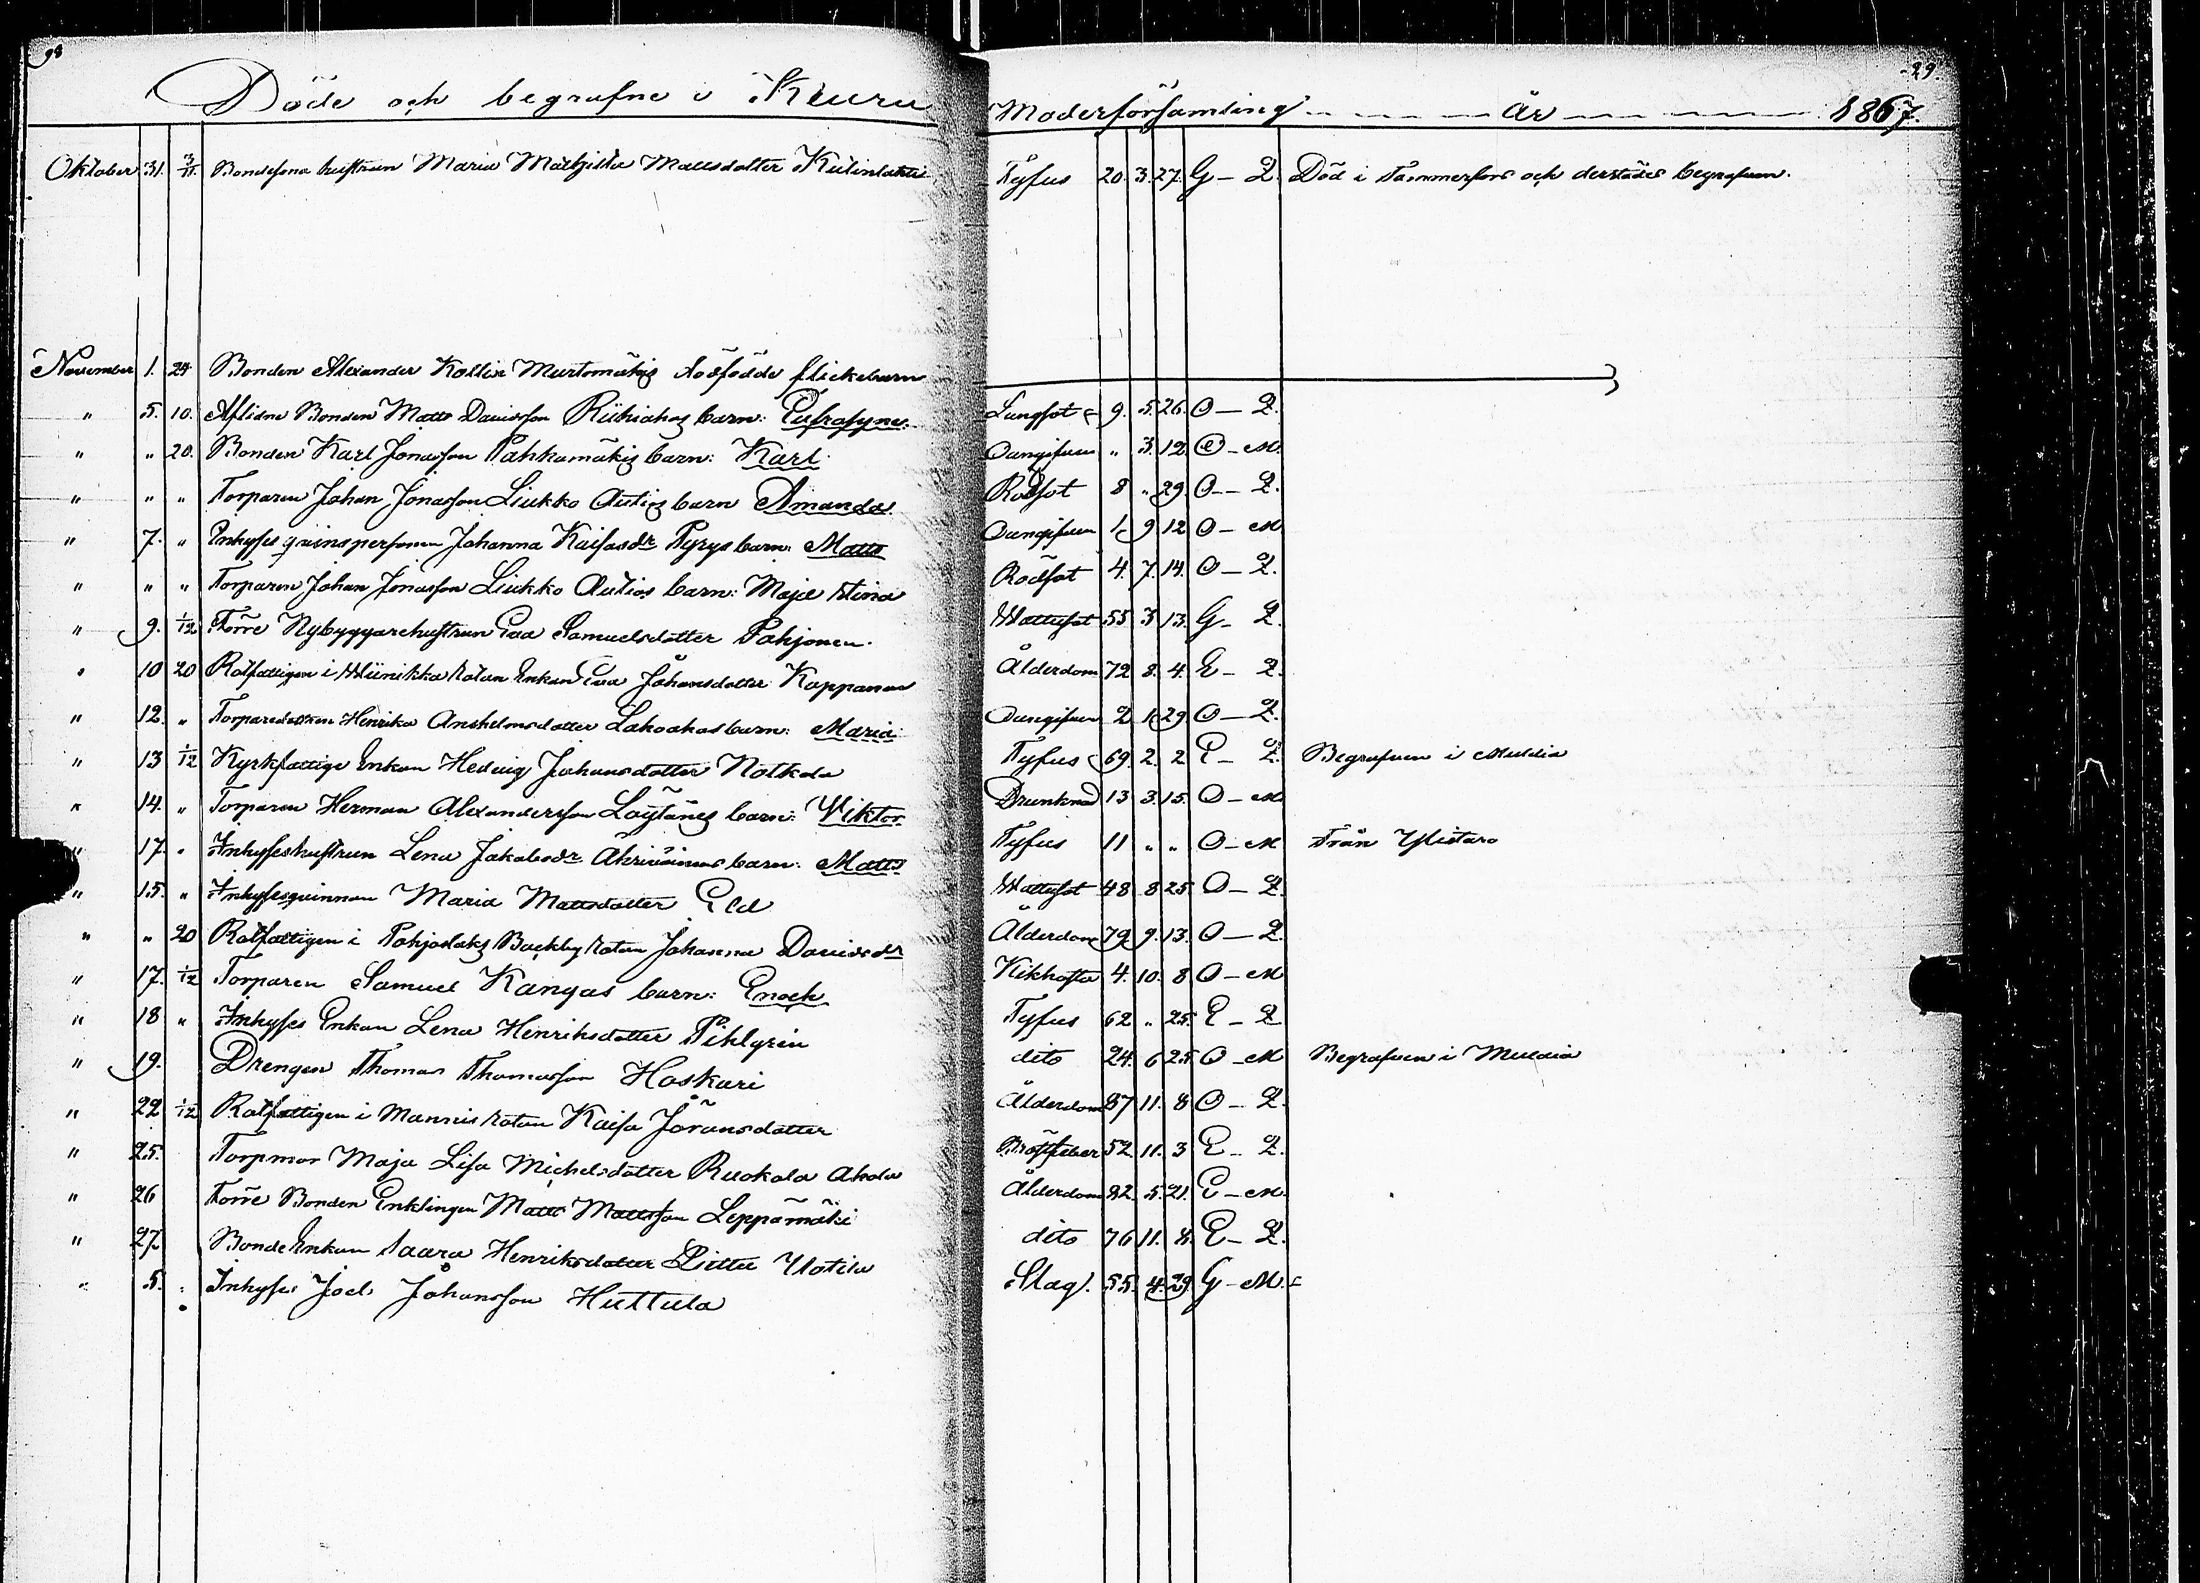 98
29.
Döde och begrafne i Keuru Moderförsamling år 1867.
Oktober 31. 3/11. Bondesona hustrun Maria Mathilda Mattsdotter Kulinlahti Tyfus 20. 3. 27. G - Q. Död i Tammerfors och derstädes begrafven.
November 1. 24 Bonden Alexander Kollin Murtomäkis dödfödde flickebarn
" 5. 10. Aflidne Bonden Matts Davidsson Riihiahos barn: Eufrosyne. Lungsot 9. 5. 26. O - Q.
" " 20. Bonden Karl Jonasson Pahkamäkis barn: Karl Oangifven " 3. 12 O - M.
" " " Torparen Johan Jonasson Liukko Autios barn Amanda. Rödsot 8 " 29. O - Q.
" 7. " Inhyses qvinspersonen Johanna Kaisasdr Pyrys barn: Matts Oangifven 1. 9 12 O - M
" " " Torparen Johan Jonasson Liukko Autios barn: Maja Stina Rödsot 4. 7. 14. O - Q.
" 9. 1/12 Förre Nybyggarehustrun Eva Samuelsdotter Pohjonen. Wattusot 55 3 13. G - Q.
" 10 20 Rotfattigen i Wiinikka rotan Enkan Eva Johansdotter Kopponen Ålderdom 72 8. 4. E - Q.
" 12. " Torparedottren Henrika Anshelmsdotter Lahoahos barn: Maria. Oangifven 2 1. 29 O - Q.
" 13 1/12 Kyrkfattige Enkan Hedvig Johansdotter Notkola Tyfus 69. 2. 2 E - Q. Begrafven i Multia
" 14. " Torparen Herman Alexandersson Löytänes barn: Viktor. Drunknad 13 3. 15. O - M
" 17. " Inhyseshustrun Lena Jakobsdr barn: Matts Tyfus 11 " " O - M Från Ylistaro
" 15. " Inhysesqvinnan Maria Mattsdotter Eld Wattusot 48 8 25 O - Q
" " 20 Rotfattigen i Pohjoslaks Backby rotan Johanna Davidsdr Ålderdom 79 9. 13. O - Q.
" 17. 1/12 Torparen Samuel Kangas barn: Enoch Kikhosta 4. 10. 8 O - M
" 18 " Inhyses Enkan Lena Henriksdotter Pihlgrén Tyfus 62 " 25. E - Q
" 19. Drengen Thomas Thomasson Hoskari dito 24. 6 25. O - M Begrafven i Multia
" 22 1/12 Rotfattigen i Mannis rotan Kaisa Göransdotter Ålderdom 87 11. 8 O - Q.
" 25. Torpmor Maja Lisa Michelsdotter Ruokola Ahola 52. 11. 3 E - Q.
" 26 Förre Bonden Enklingen Matts Mattsson Leppämäki Ålderdom 82. 5. 21. E - M.
" 27. Bonde Enkan Saara Henriksdotter Ylotila dito 76 11. 8. E - Q.
" 5. " Inhyses Joel Johansson Huttula Slag. 55. 4. 29. G - M.